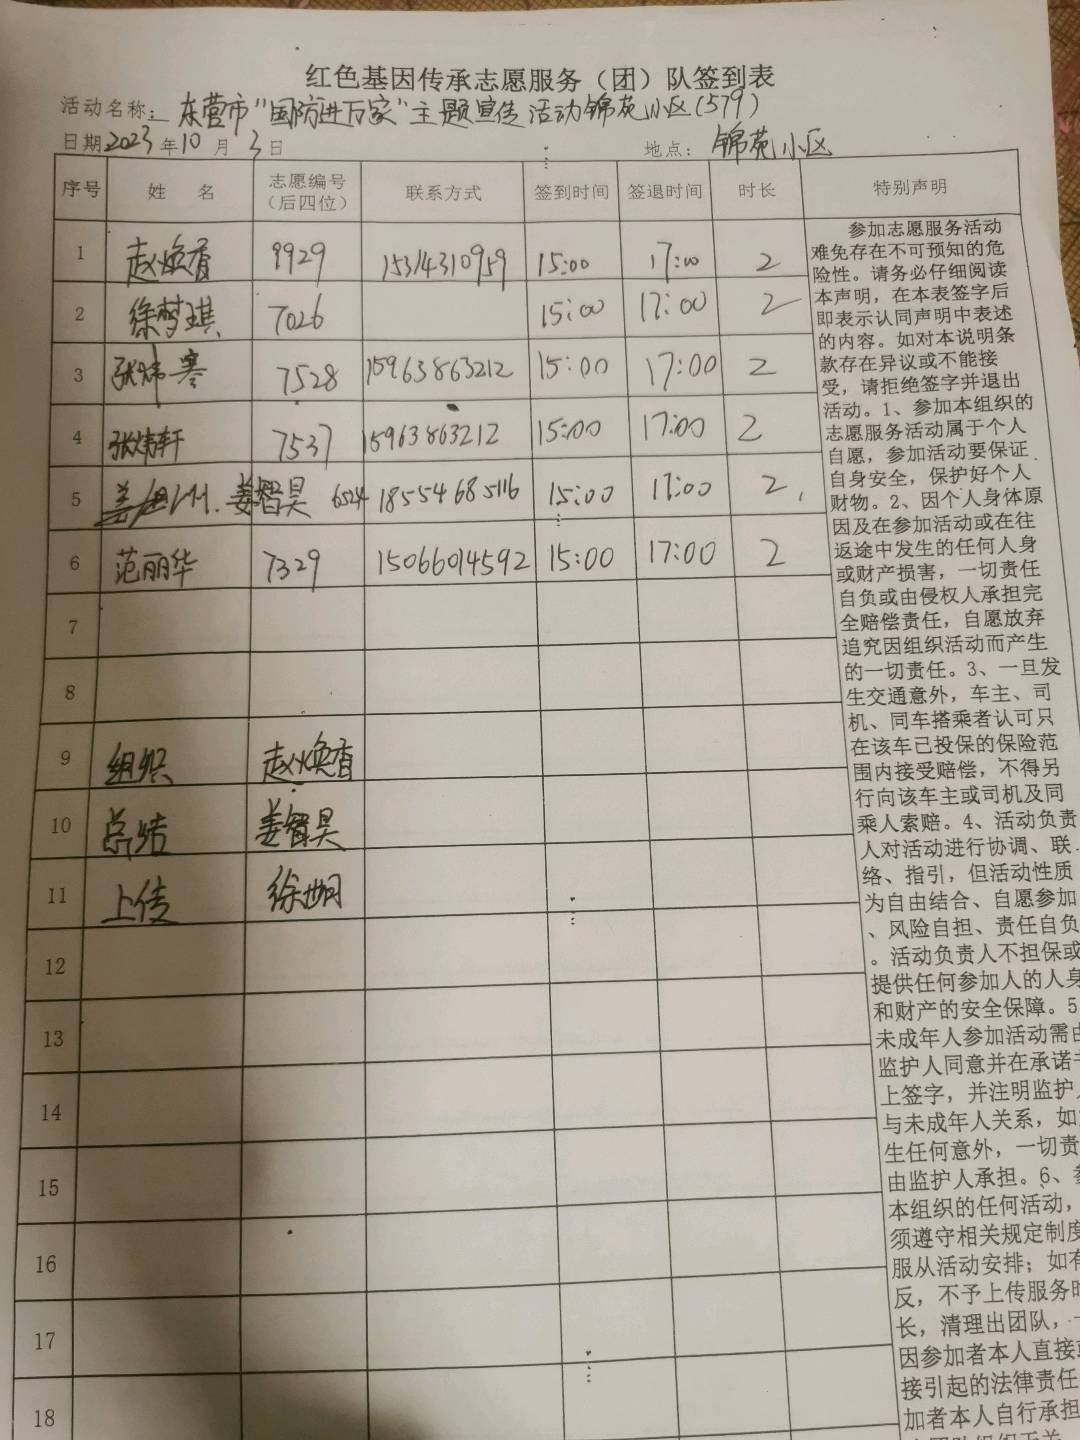 红色基因传承志愿服务（团）队签到表
活动名称：东营市"国防进万家"主题宣传活动锦苑小区(579)
日期2023年10月3日 地点：锦苑小区
序号 姓 名 志愿编号（后四位） 联系方式 签到时间 签退时间 时长 特别声明
1 赵焕香 9929 15314310959 15:00 17:00 2
2 徐梦琪 7026 15:00 17:00 2
3 张炜寒 7528 15963863212 15:00 17:00 2
4 张炜轩 7537 15963863212 15:00 17:00 2
5 姜智昊 6524 18554685116 15:00 17:00 2
6 范丽华 7329 15066014592 15:00 17:00 2
7
8
9 组织 赵焕香
10 总结 姜智昊
11 上传 徐
12
13
14
15
16
17
18
参加志愿服务活动
难免存在不可预知的危
险性。请务必仔细阅读
本声明，在本表签字后
即表示认同声明中表述
的内容。如对本说明条
款存在异议或不能接
受，请拒绝签字并退出
活动。1、参加本组织的
志愿服务活动属于个人
自愿，参加活动要保证
自身安全，保护好个人
财物。2、因个人身体原
因及在参加活动或在往
返途中发生的任何人身
或财产损害，一切责任
自负或由侵权人承担完
全赔偿责任，自愿放弃
追究因组织活动而产生
的一切责任。3、一旦发
生交通意外，车主、司
机、同车搭乘者认可只
在该车已投保的保险范
围内接受赔偿，不得另
行向该车主或司机及同
乘人索赔。4、活动负责
人对活动进行协调、联
络、指引，但活动性质
为自由结合、自愿参加
、风险自担、责任自负
。活动负责人不担保或
提供任何参加人的人身
和财产的安全保障。5
未成年人参加活动需由
监护人同意并在承诺
上签字，并注明监护
与未成年人关系，如
生任何意外，一切责
由监护人承担。6、
本组织的任何活动，
须遵守相关规定制度
服从活动安排；如有
反，不予上传服务时
长，清理出团队，
因参加者本人直接
接引起的法律责任
加者本人自行承担